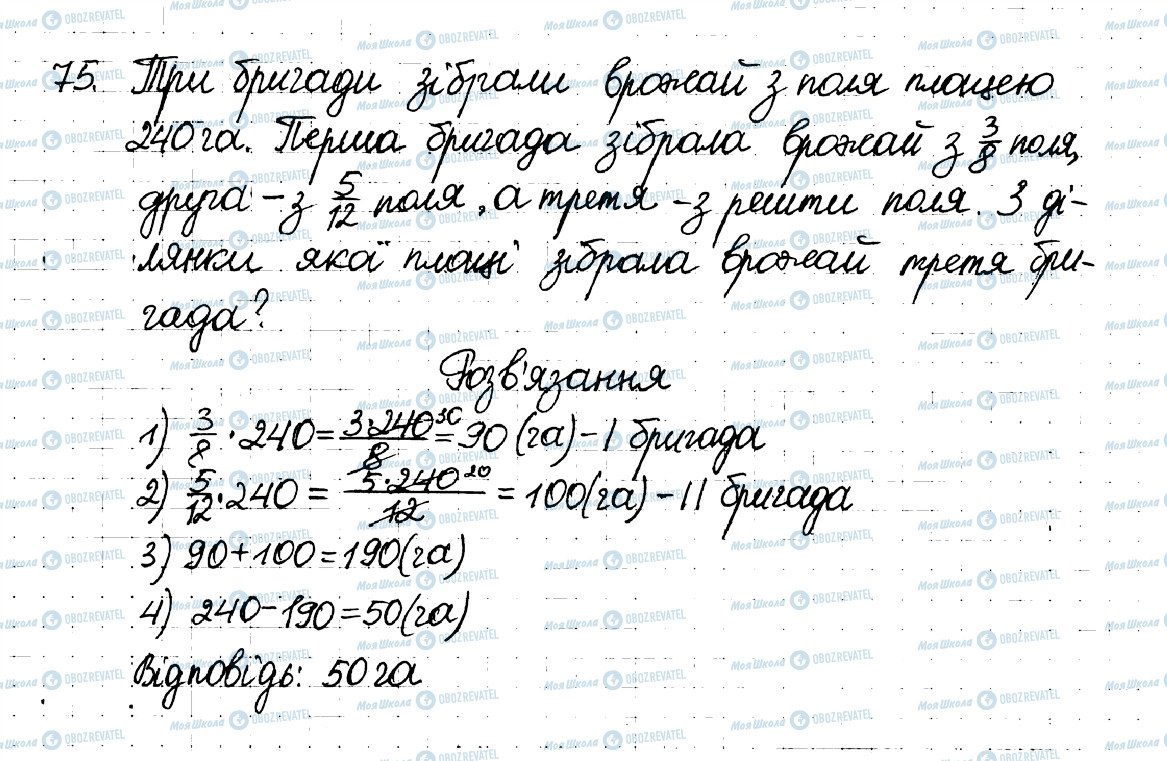 75. Три бригади зібрали врожай з поля площею
240 га. Перша бригада зібрала врожай з 3/8 поля,
друга – з 5/12 поля, а третя – з решти поля. З ді-
лянки якої площі зібрала врожай третя бри-
гада?
Розв'язання
1) 3/8 · 240 = 3·240³⁰/8 = 90 (га) – I бригада
2) 5/12 · 240 = 5·240²⁰/12 = 100 (га) – II бригада
3) 90 + 100 = 190 (га)
4) 240 – 190 = 50 (га)
Відповідь: 50 га
Моя Школа OBOZREVATEL